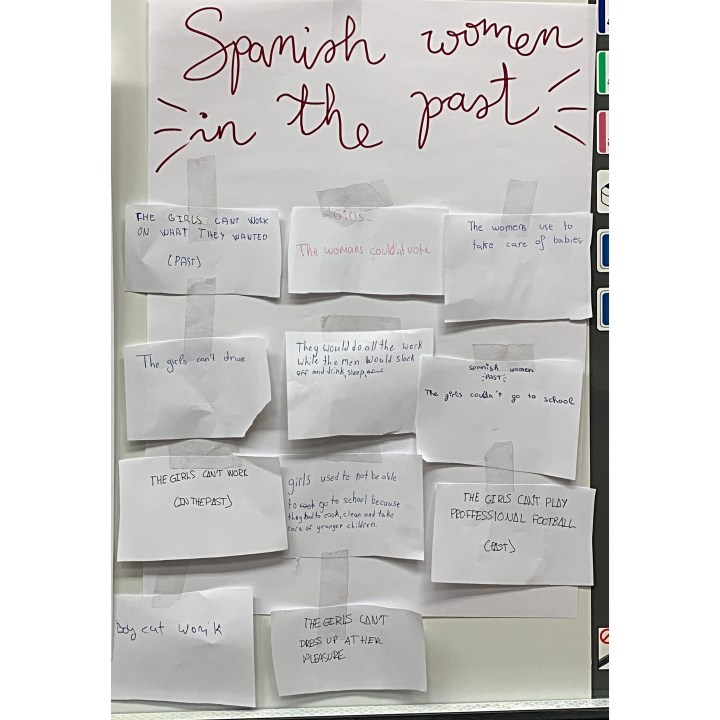 Spanish women
in the past
THE GIRLS CANT WORK
ON WHAT THEY WANTED
(PAST)
-Girls-
The womans couldn't vote
The womens use to
take care of babies
The girls can't drive
They would do all the work
while the men would slack
off and drink, sleep,
spanish women
-PAST-
The girls couldn't go to school
THE GIRLS CAN'T WORK
(IN THE PAST)
girls used to not be able
to go to school because
they had to cook, clean and take
care of younger children.
THE GIRLS CANT PLAY
PROFFESSIONAL FOOTBALL
(PAST)
cut
THE GIRLS CAN'T
DRESS UP AT HER
PLEASURE